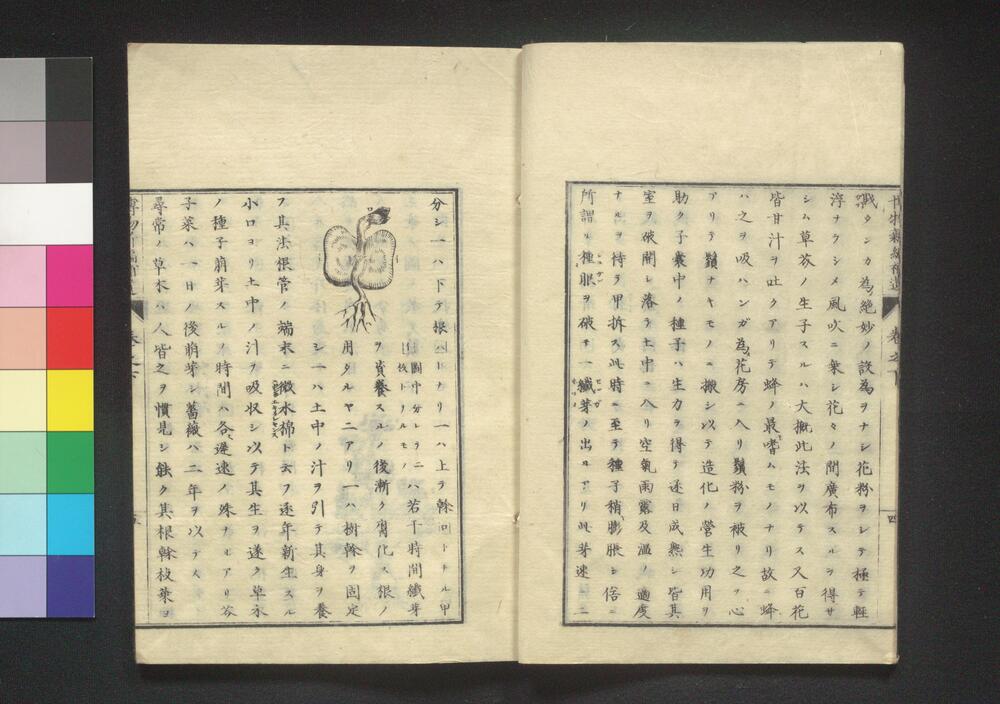 戰タンカ為絶妙ノ設為ヲナシ花粉ヲレテ極テ輕
淳ナラシメ風吹ニ乗シ花々ノ間廣布スルヲ得サ
シム草芥ノ生子スルハ大概此法ヲ以テス又百花
皆甘汁ヲ吐クアリテ蜂ノ最嗜ハモノナリ故ニ蜂
ハ之ヲ吸ハンガ為花房ニ入リ鬚粉ヲ被リ之ヲ心
アリテ鬚ナキモノニ搬シ以テ造化ノ營生功用ヲ
助ク子囊中ノ種子ハ生力ヲ得テ逐日成熟シ皆其
室ヲ破開シ落テ土中ニ入リ空氣雨露及温ノ適度
ナルヲ待テ甲拆ス此時ニ至テ種子稍膨脹シ倍ニ
所謂ル種眼ヲ破キ一纎芽ノ出ルアリ此芽速ニ二
四
分シ一ハ下テ根トナリ一ハ上テ幹トナル甲
圖中分レテ二ハ若干時間纎芽
ヲ資養スルノ後漸ク腐化ス根ノ
用タルヤ二アリ一ハ樹幹ヲ固定
シ一ハ土中ノ汁ヲ引テ其身ヲ養
フ其法根管ノ端末ニ微水棉ト云フ逐年新生スル
小口ヨリ土中ノ汁ヲ吸収シ以テ其生ヲ遂ク草木
ノ種子萠芽スルノ時間ハ各遲速ノ殊ナルアリ芥
子菜ハ一日ノ後萠芽シ薔薇ハ二年ヲ以テス
尋常ノ草木ハ人皆之ヲ慣見シ能ク其根幹枝葉ヲ
五